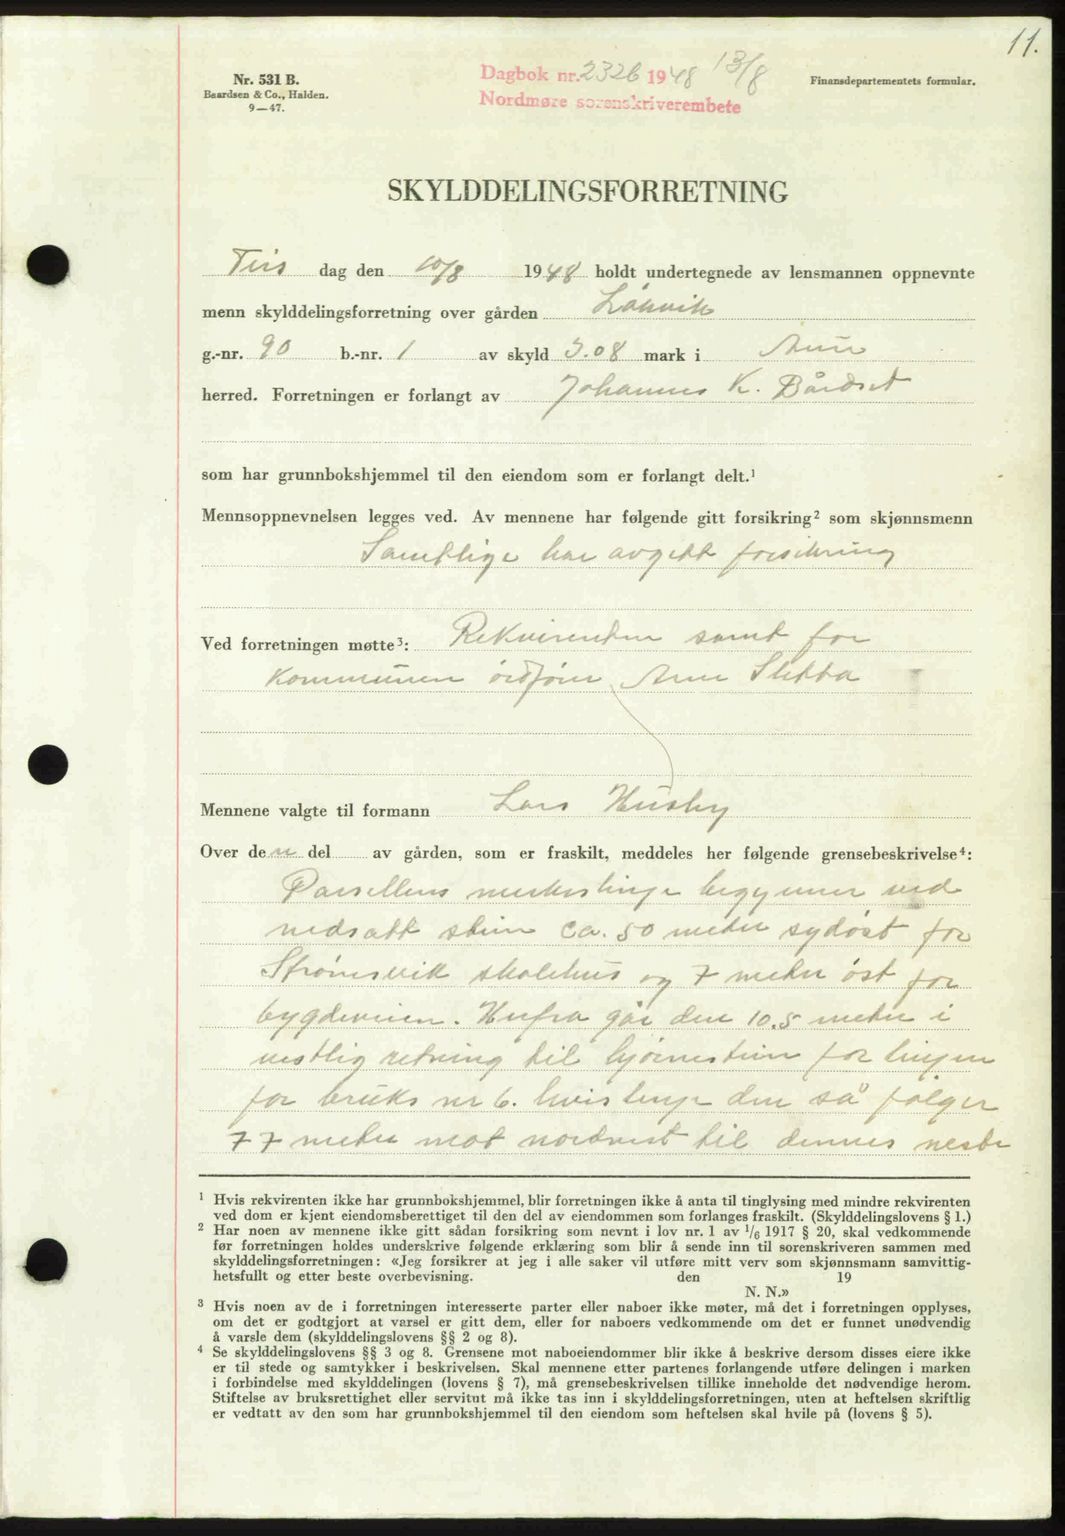 11.
Nr. 531 B.
Baardsen & Co., Halden.
9—47.
Dagbok nr. 2326 1948 13/8
Nordmøre sorenskriverembete
Finansdepartementets formular.
SKYLDDELINGSFORRETNING
Tirs dag den 10/8 1948 holdt undertegnede av lensmannen oppnevnte
menn skylddelingsforretning over gården
g.-nr. 90 b.-nr. 1 av skyld 3.08 mark i Aure
herred. Forretningen er forlangt av Johannes K. Bårdset
som har grunnbokshjemmel til den eiendom som er forlangt delt.¹
Mennsoppnevnelsen legges ved. Av mennene har følgende gitt forsikring² som skjønnsmenn
Samtlige har avgitt forsikring
Ved forretningen møtte³: Rekvirenten samt for
kommunen ordfører Arne
Mennene valgte til formann Lars Husby
Over den del av gården, som er fraskilt, meddeles her følgende grensebeskrivelse⁴:
Parsellens merkeslinje begynner ved
nedsatt stein ca. 50 meter sydøst for
Strømsvik skolehus og 7 meter øst for
bygdeveien. Herfra går den 10.5 meter i
vestlig retning til hjørnestein for linjen
for bruks nr 6. hvis linje den så følger
77 meter mot nordvest til dennes neste
¹ Hvis rekvirenten ikke har grunnbokshjemmel, blir forretningen ikke å anta til tinglysing med mindre rekvirenten
ved dom er kjent eiendomsberettiget til den del av eiendommen som forlanges fraskilt. (Skylddelingslovens § 1.)
² Har noen av mennene ikke gitt sådan forsikring som nevnt i lov nr. 1 av 1/6 1917 § 20, skal vedkommende
før forretningen holdes underskrive følgende erklæring som blir å sende inn til sorenskriveren sammen med
skylddelingsforretningen: «Jeg forsikrer at jeg i alle saker vil utføre mitt verv som skjønnsmann samvittig-
hetsfullt og etter beste overbevisning. den 19
N. N.»
³ Hvis noen av de i forretningen interesserte parter eller naboer ikke møter, må det i forretningen opplyses,
om det er godtgjort at varsel er gitt dem, eller for naboers vedkommende om det er funnet unødvendig
å varsle dem (skylddelingslovens §§ 2 og 8).
⁴ Se skylddelingslovens §§ 3 og 8. Grensene mot naboeiendommer blir ikke å beskrive dersom disses eiere ikke
er til stede og samtykker i beskrivelsen. Skal mennene etter partenes forlangende utføre delingen i marken
i forbindelse med skylddelingen (lovens § 7), må grensebeskrivelsen tillike inneholde det nødvendige herom.
Stiftelse av bruksrettighet eller servitut må ikke tas inn i skylddelingsforretningen, uten at heftelsen skriftlig
er vedtatt av den som har grunnbokshjemmel til den eiendom som heftelsen skal hvile på (lovens § 5).